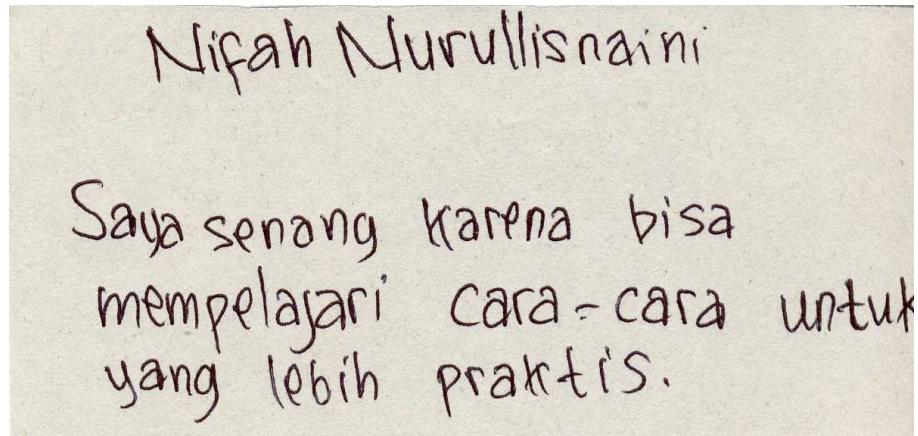 Nifah Nurullisnaini
Saya senang karena bisa
mempelajari cara-cara untuk
yang lebih praktis.